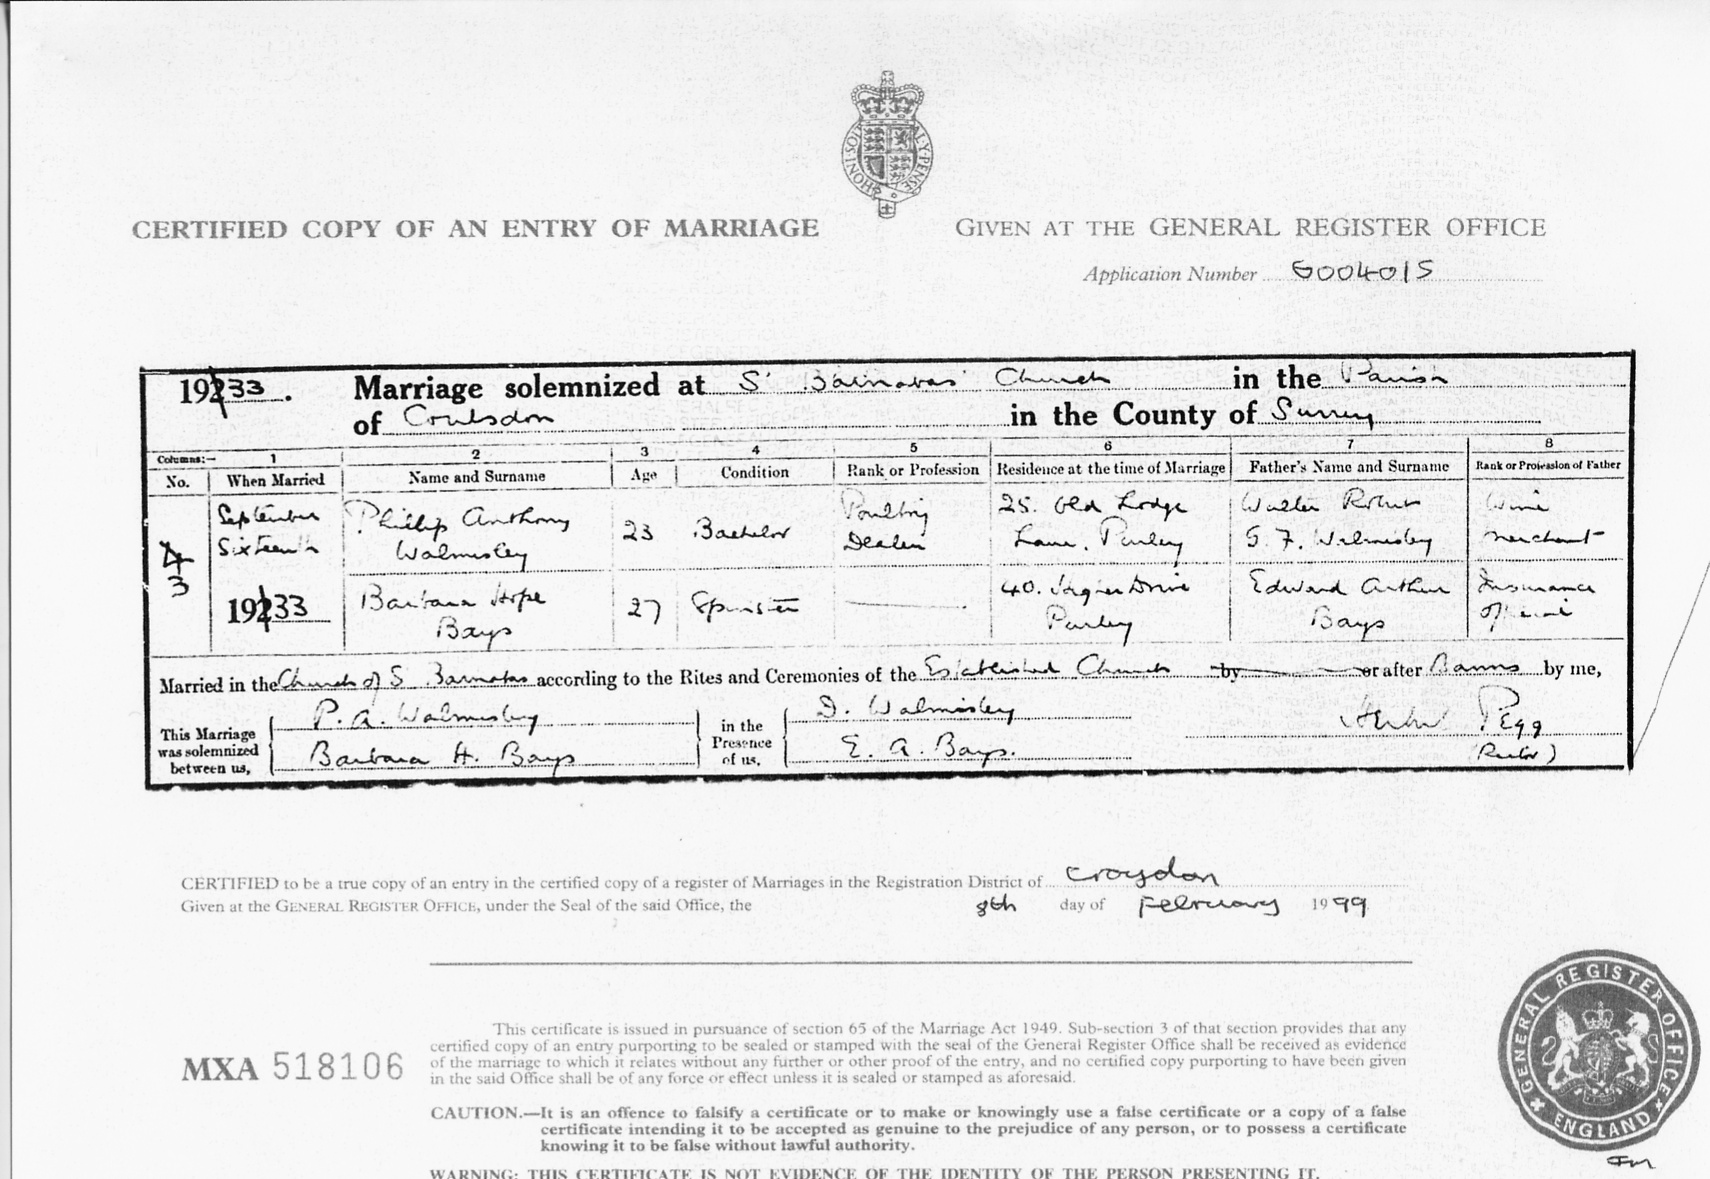 HONI SOIT QUI MAL Y PENSE
CERTIFIED COPY OF AN ENTRY OF MARRIAGE
GIVEN AT THE GENERAL REGISTER OFFICE
Application Number G004015
1933. Marriage solemnized at S' Barnabas' Church in the Parish
of Coulsdon in the County of Surrey
Columns:— 1 2 3 4 5 6 7 8
No. When Married Name and Surname Age Condition Rank or Profession Residence at the time of Marriage Father's Name and Surname Rank or Profession of Father
September Phillip Anthony 23 Bachelor Poultry 25. Old Lodge Walter Robert Wine
Sixteenth Walmisley Dealer Lane, Purley G. F. Walmisley Merchant
43
1933 Barbara Hope 27 Spinster 40. Higher Drive Edward Arthur Insurance
Bays Purley Bays Official
Married in the Church of S Barnabas according to the Rites and Ceremonies of the Established Church by or after Banns by me,
This Marriage was solemnized between us,
P. A. Walmisley
Barbara H. Bays
in the Presence of us,
D. Walmisley
E. A. Bays.
Pegg
(Rector)
CERTIFIED to be a true copy of an entry in the certified copy of a register of Marriages in the Registration District of Croydon
Given at the GENERAL REGISTER OFFICE, under the Seal of the said Office, the 8th day of February 1999
MXA 518106
This certificate is issued in pursuance of section 65 of the Marriage Act 1949. Sub-section 3 of that section provides that any
certified copy of an entry purporting to be sealed or stamped with the seal of the General Register Office shall be received as evidence
of the marriage to which it relates without any further or other proof of the entry, and no certified copy purporting to have been given
in the said Office shall be of any force or effect unless it is sealed or stamped as aforesaid.
CAUTION.—It is an offence to falsify a certificate or to make or knowingly use a false certificate or a copy of a false
certificate intending it to be accepted as genuine to the prejudice of any person, or to possess a certificate
knowing it to be false without lawful authority.
WARNING: THIS CERTIFICATE IS NOT EVIDENCE OF THE IDENTITY OF THE PERSON PRESENTING IT.
GENERAL REGISTER OFFICE
ENGLAND